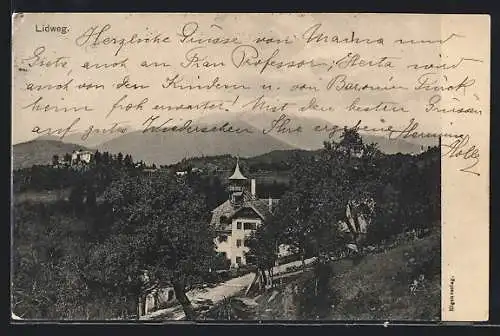 Lidweg.
Herzliche Grüsse von Mama und
auch an Frau Professor; Herta wird
auch von den Kindern u. von Baronin Türck
heim froh erwartet! Mit den besten Grüssen
auf gutes Wiedersehen Ihre ergebene
Eigenverlag.